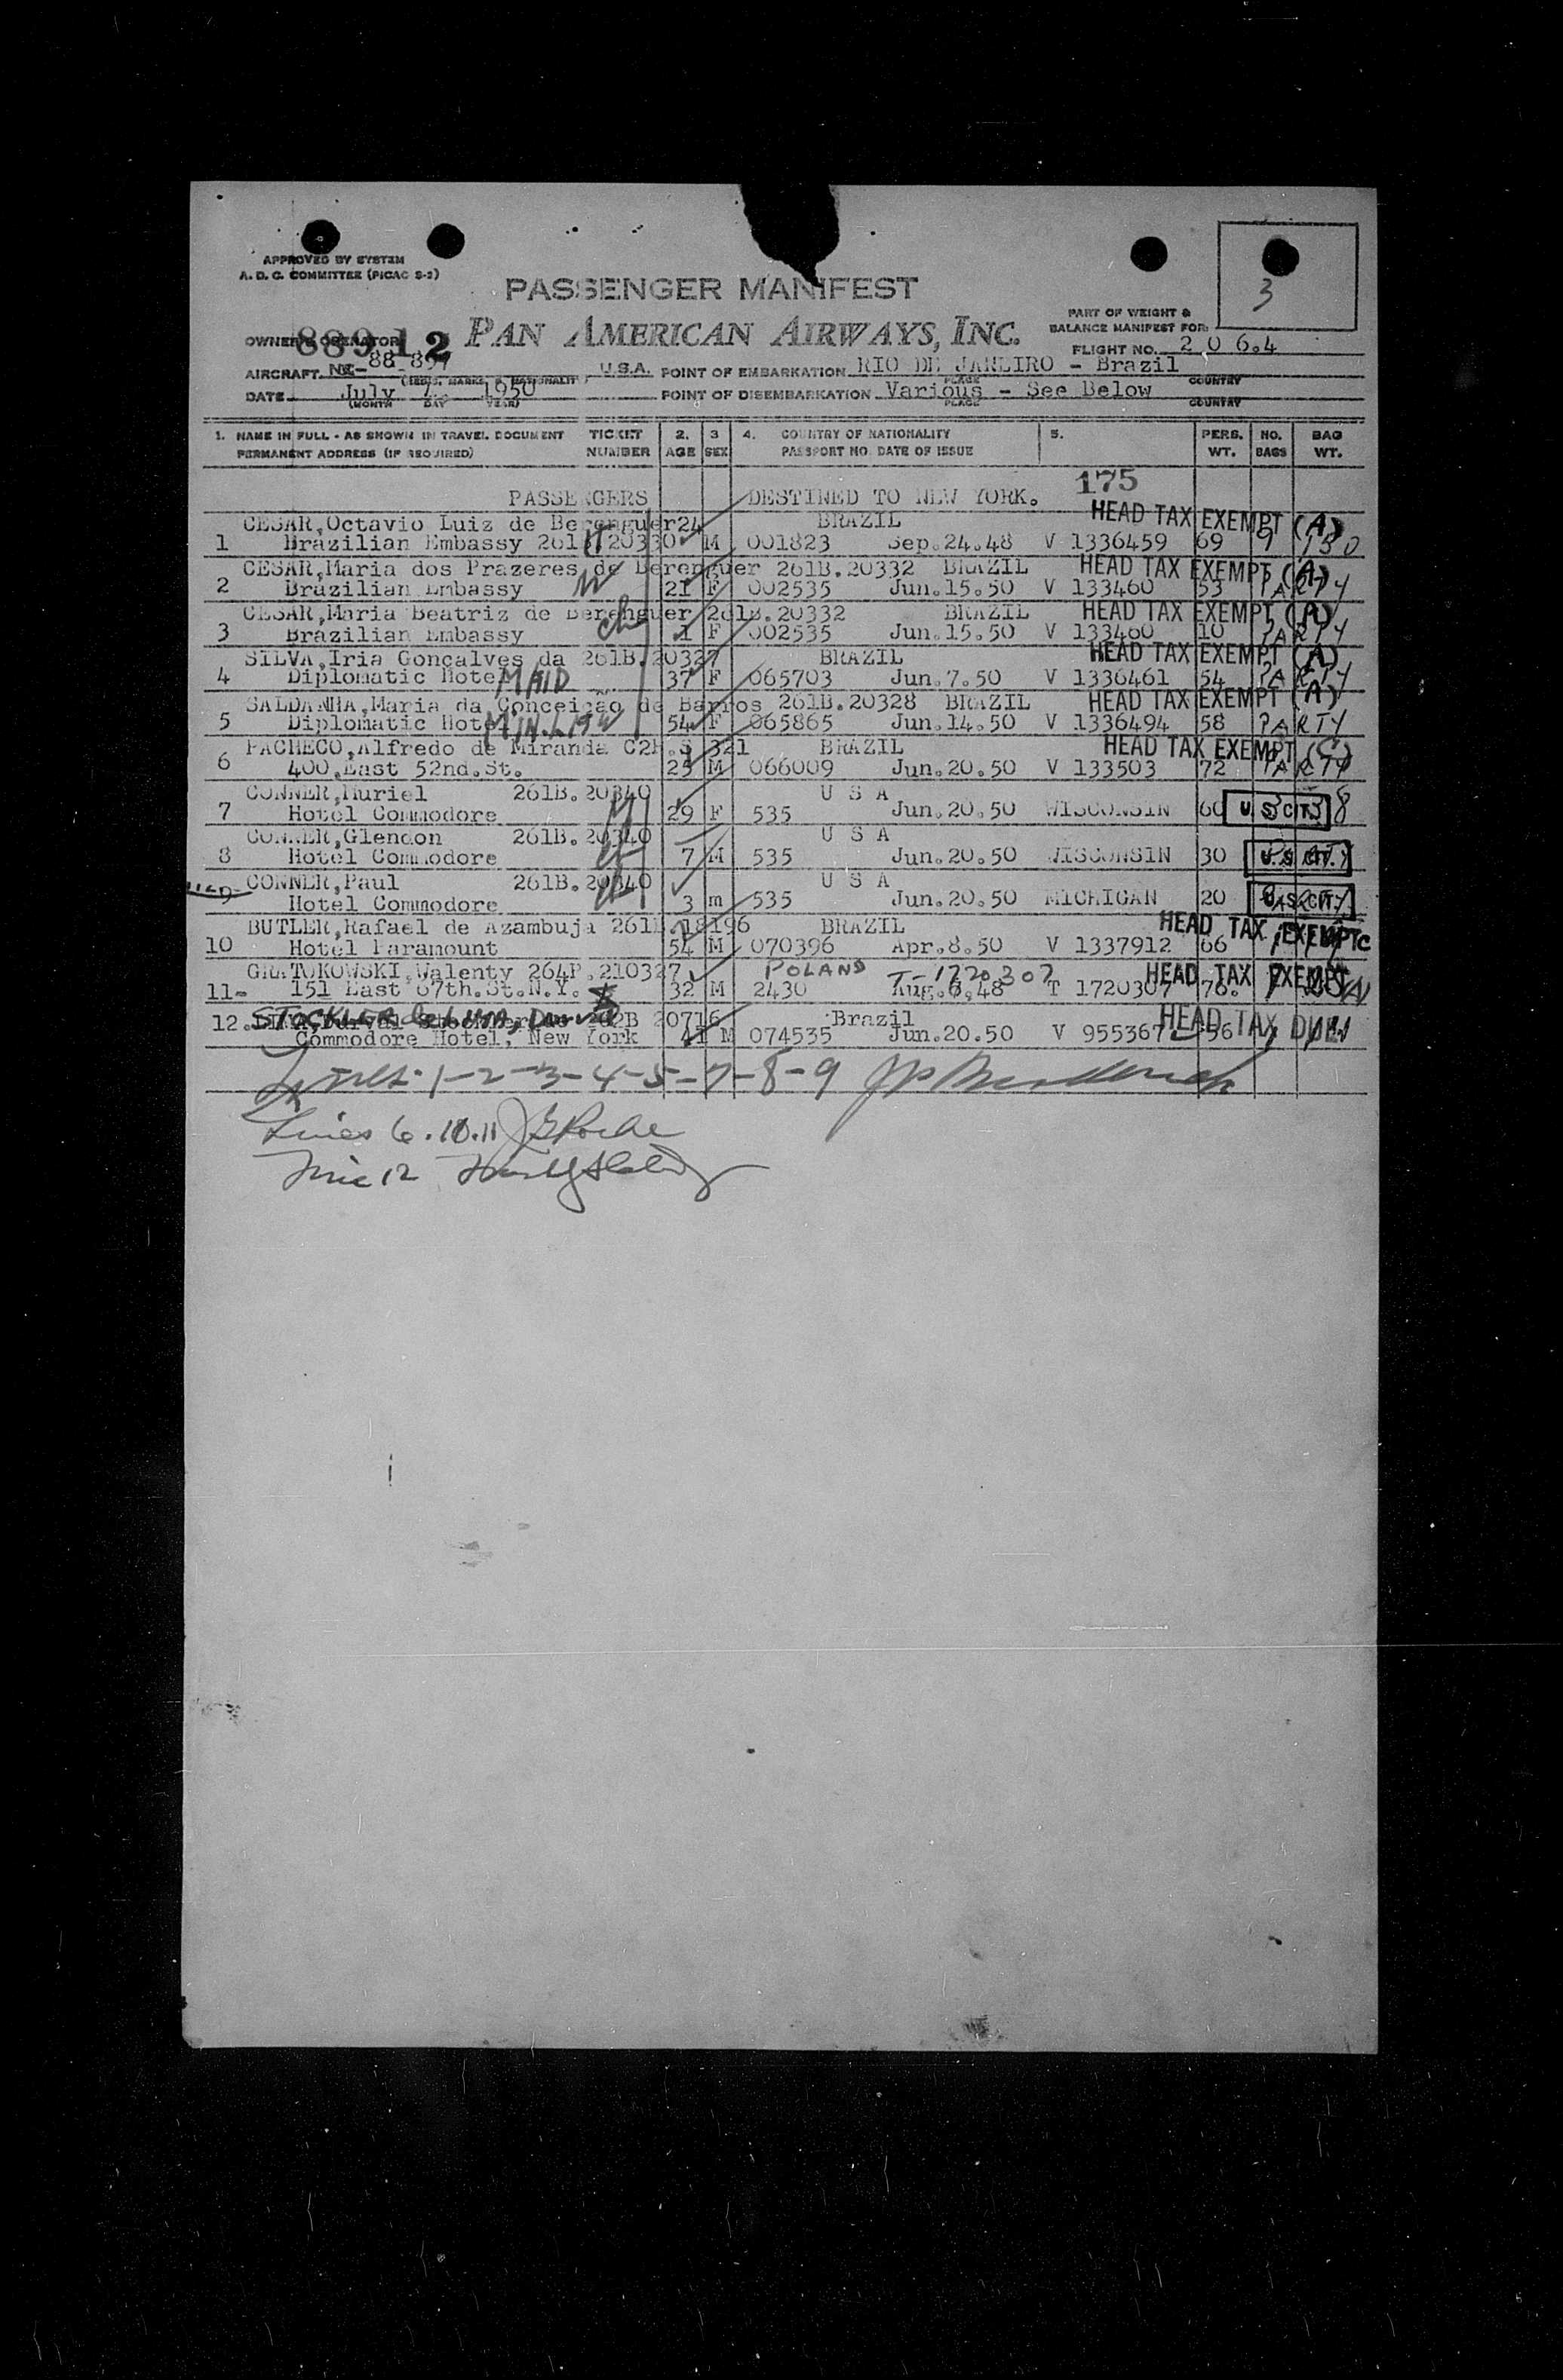 APPROVED BY SYSTEM
A. D. C. COMMITTEE (PICAO S-2)
3
PASSENGER MANIFEST
PART OF WEIGHT &
BALANCE MANIFEST FOR:
OWNER & OPERATOR 88912 PAN AMERICAN AIRWAYS, INC.
FLIGHT NO. 206.4
AIRCRAFT NC-88-897 U.S.A. POINT OF EMBARKATION RIO DE JANEIRO - Brazil
DATE July 1950 POINT OF DISEMBARKATION Various - See Below
(MONTH DAY YEAR) PLACE COUNTRY
1. NAME IN FULL - AS SHOWN IN TRAVEL DOCUMENT TICKET 2. 3 4. COUNTRY OF NATIONALITY 5. PERS. NO. BAG
PERMANENT ADDRESS (IF REQUIRED) NUMBER AGE SEX PASSPORT NO. DATE OF ISSUE WT. BAGS WT.
175
PASSENGERS DESTINED TO NEW YORK.
CESAR,Octavio Luiz de Berenguer 24 BRAZIL HEAD TAX EXEMPT (A)
1 Brazilian Embassy 261B 20330 M 001823 Sep.24.48 V 1336459 69 9
CESAR,Maria dos Prazeres de Berenguer 261B.20332 BRAZIL HEAD TAX EXEMPT (A)
2 Brazilian Embassy W 21 F 002535 Jun.15.50 V 133460 53 PARTY
CESAR,Maria Beatriz de Berenguer 261B.20332 BRAZIL HEAD TAX EXEMPT (A)
3 Brazilian Embassy ch 1 F 002535 Jun.15.50 V 133460 10 PARTY
SILVA,Iria Goncalves da 261B.20327 BRAZIL HEAD TAX EXEMPT (A)
4 Diplomatic Hote MAID 37 F 065703 Jun.7.50 V 1336461 54 PARTY
SALDANHA,Maria da Conceição de Barros 261B.20328 BRAZIL HEAD TAX EXEMPT (A)
5 Diplomatic Hot 54 F 065865 Jun.14.50 V 1336494 58 PARTY
PACHECO,Alfredo de Miranda 321 BRAZIL HEAD TAX EXEMPT (C)
6 400,East 52nd.St. 25 M 066009 Jun.20.50 V 133503 72 PARTY
CONNER,Muriel 261B.20340 U S A
7 Hotel Commodore 29 F 535 Jun.20.50 WISCONSIN 60 U.S.CIT.
CONNER,Glendon 261B.20340 U S A
8 Hotel Commodore 7 M 535 Jun.20.50 WISCONSIN 30 U.S.CIT.
CONNER,Paul 261B.20340 U S A
9 Hotel Commodore 3 m 535 Jun.20.50 MICHIGAN 20 U.S.CIT.
BUTLER,Rafael de Azambuja 261B.18196 BRAZIL HEAD TAX EXEMPT C
10 Hotel Paramount 54 M 070396 Apr.8.50 V 1337912 66
Walenty 264P.210327 POLAND T-1720307 HEAD TAX EXEMPT
11- 151 East 67th.St.N.Y. 32 M 2430 Aug. 48 T 1720307 76.
12. STOCKLER de LIMA, Durval 20716 Brazil HEAD TAX
Commodore Hotel, New York 41 M 074535 Jun.20.50 V 955367 56
1-2-3-4-5-7-8-9
Lines 6.10.11
Line 12